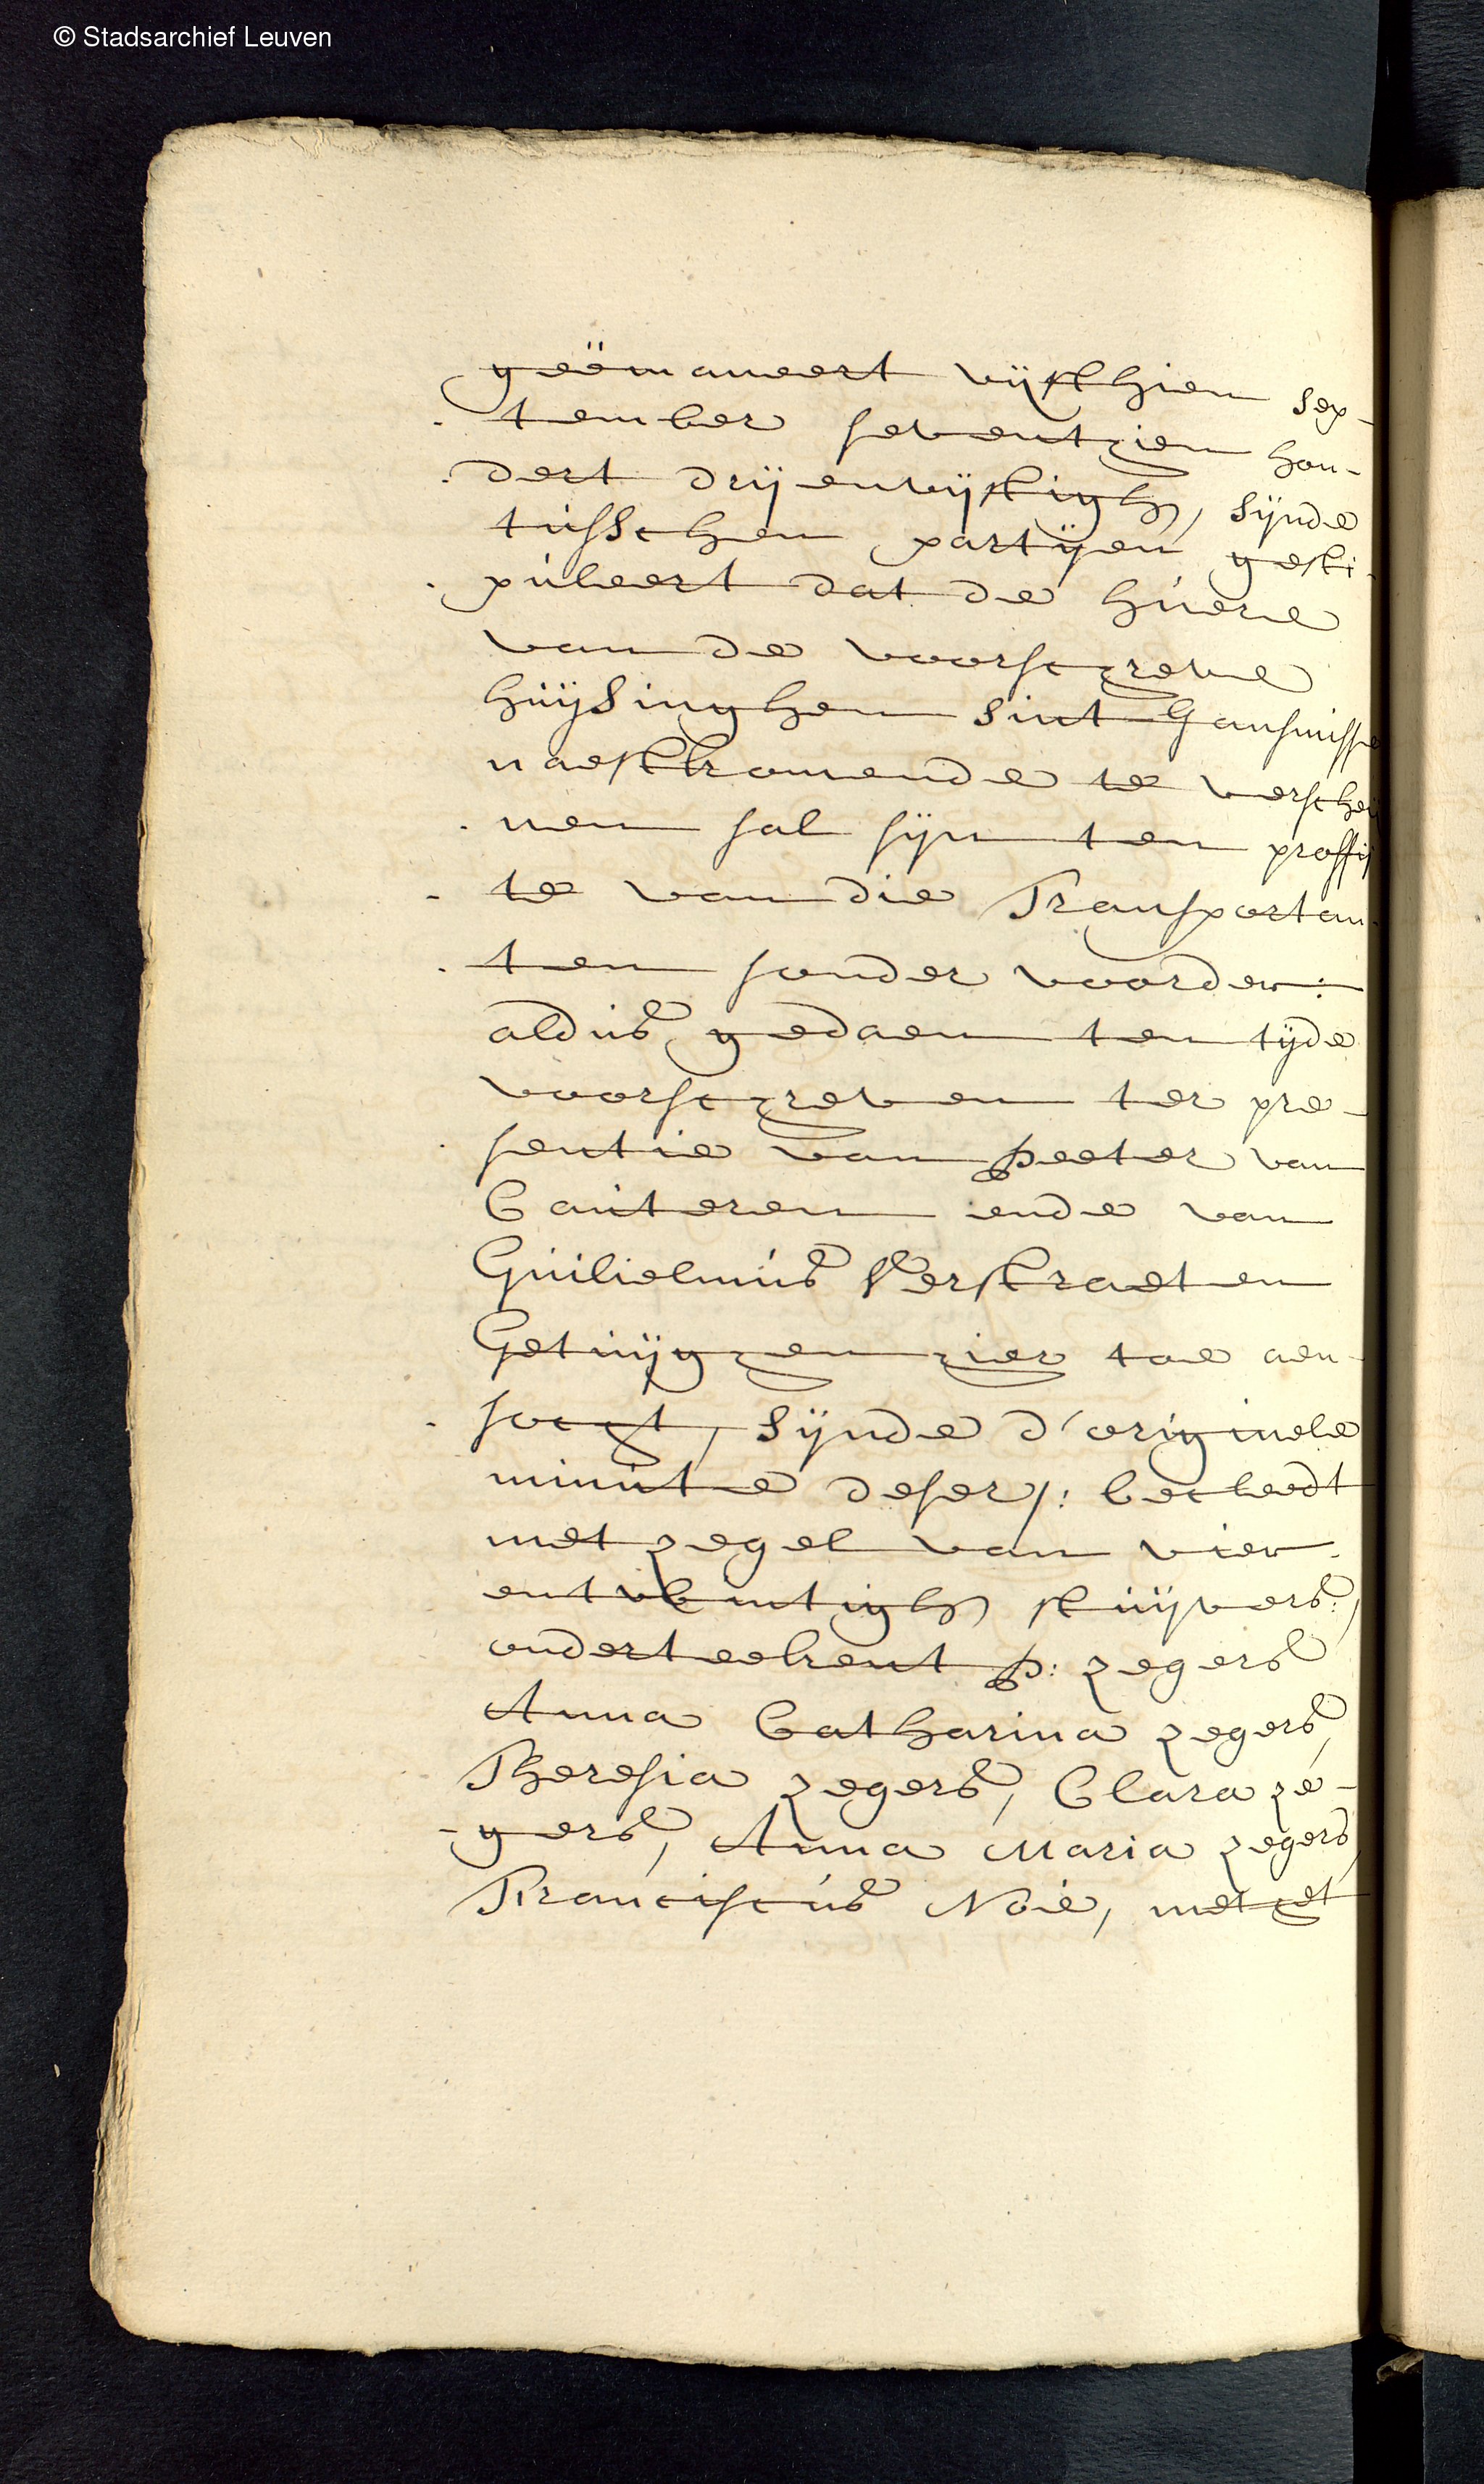 © Stadsarchief Leuven
geëmaneert vijfthien sep-
tember seventhien hon-
dert drijenvijftigh, sijnde
tusschen partijen gesti-
puleert dat de huere
van de voorschreve
huijsinghen sint Jansmisse
naestkomende te verscheij
nen sal sijn ten proffij
te van die Transportan-
ten sonder voorder:
aldus gedaen ten tijde
voorschreven ter pre-
sentie van peeter van
Cauteren ende van
Guilielmus Verstraeten
Getuijghen hier toe aen-
socht, sijnde d'originele
minute deser /: becleedt
met zegel van vier-
entwintigh stuijvers:/
onderteekent P: zegers
Anna Catharina zegers,
Theresia zegers, Clara ze-
-gers, Anna Maria zegers,
Franciscus Noie, met het